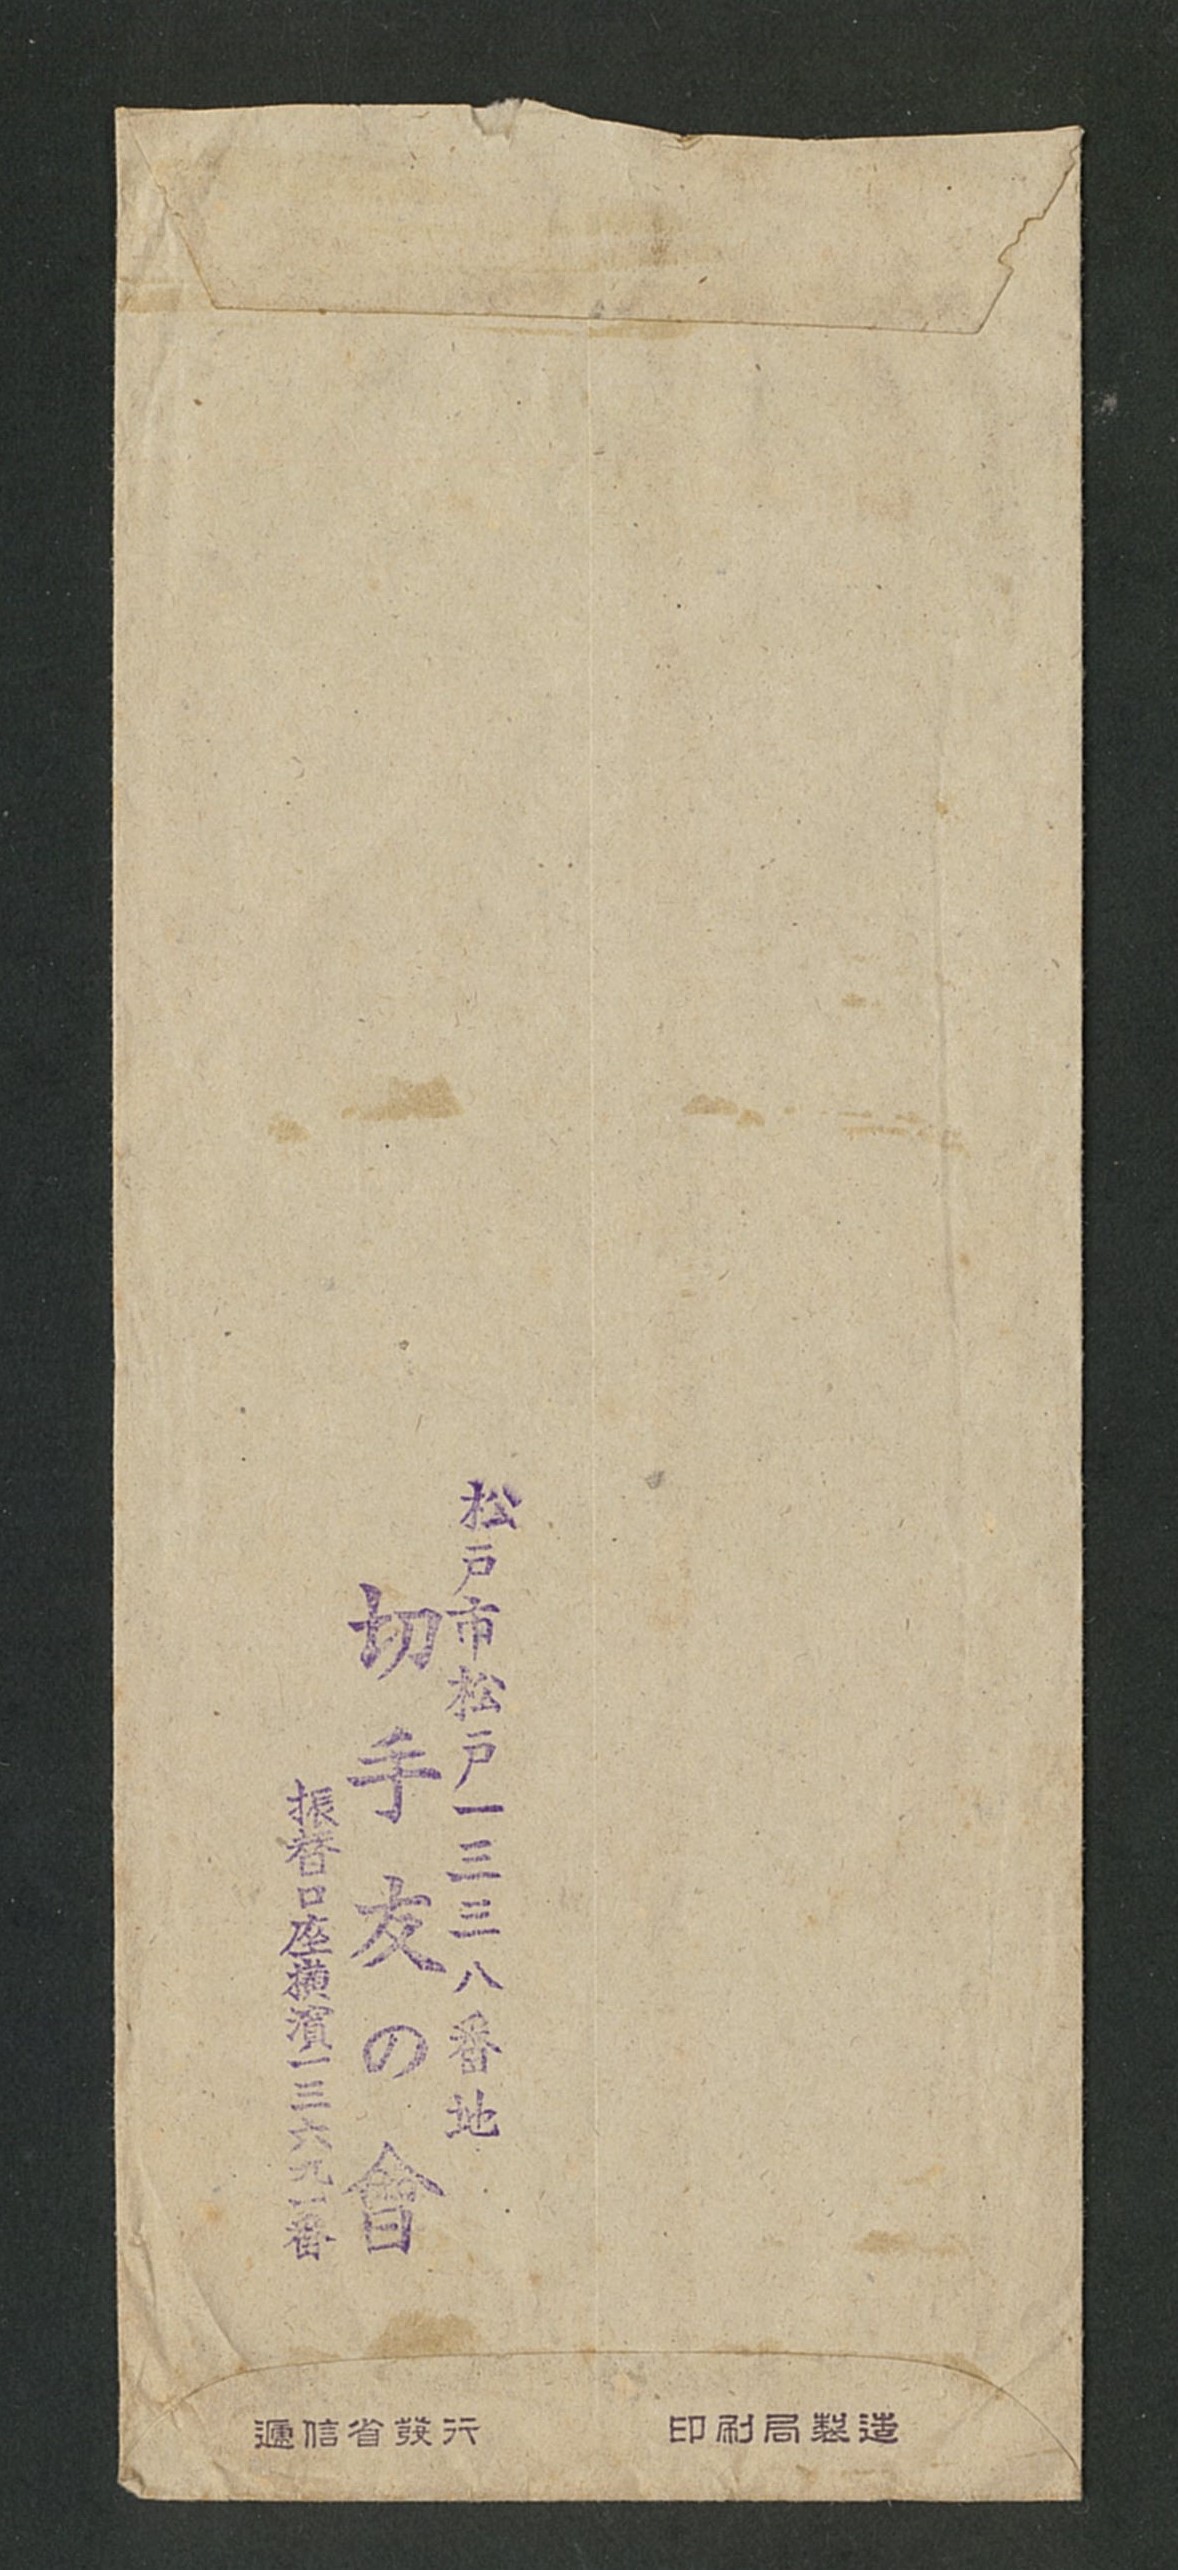 松戸市松戸一三三八番地
切手友の會
振替口座横濱一三六九一番
遞信省發行
印刷局製造